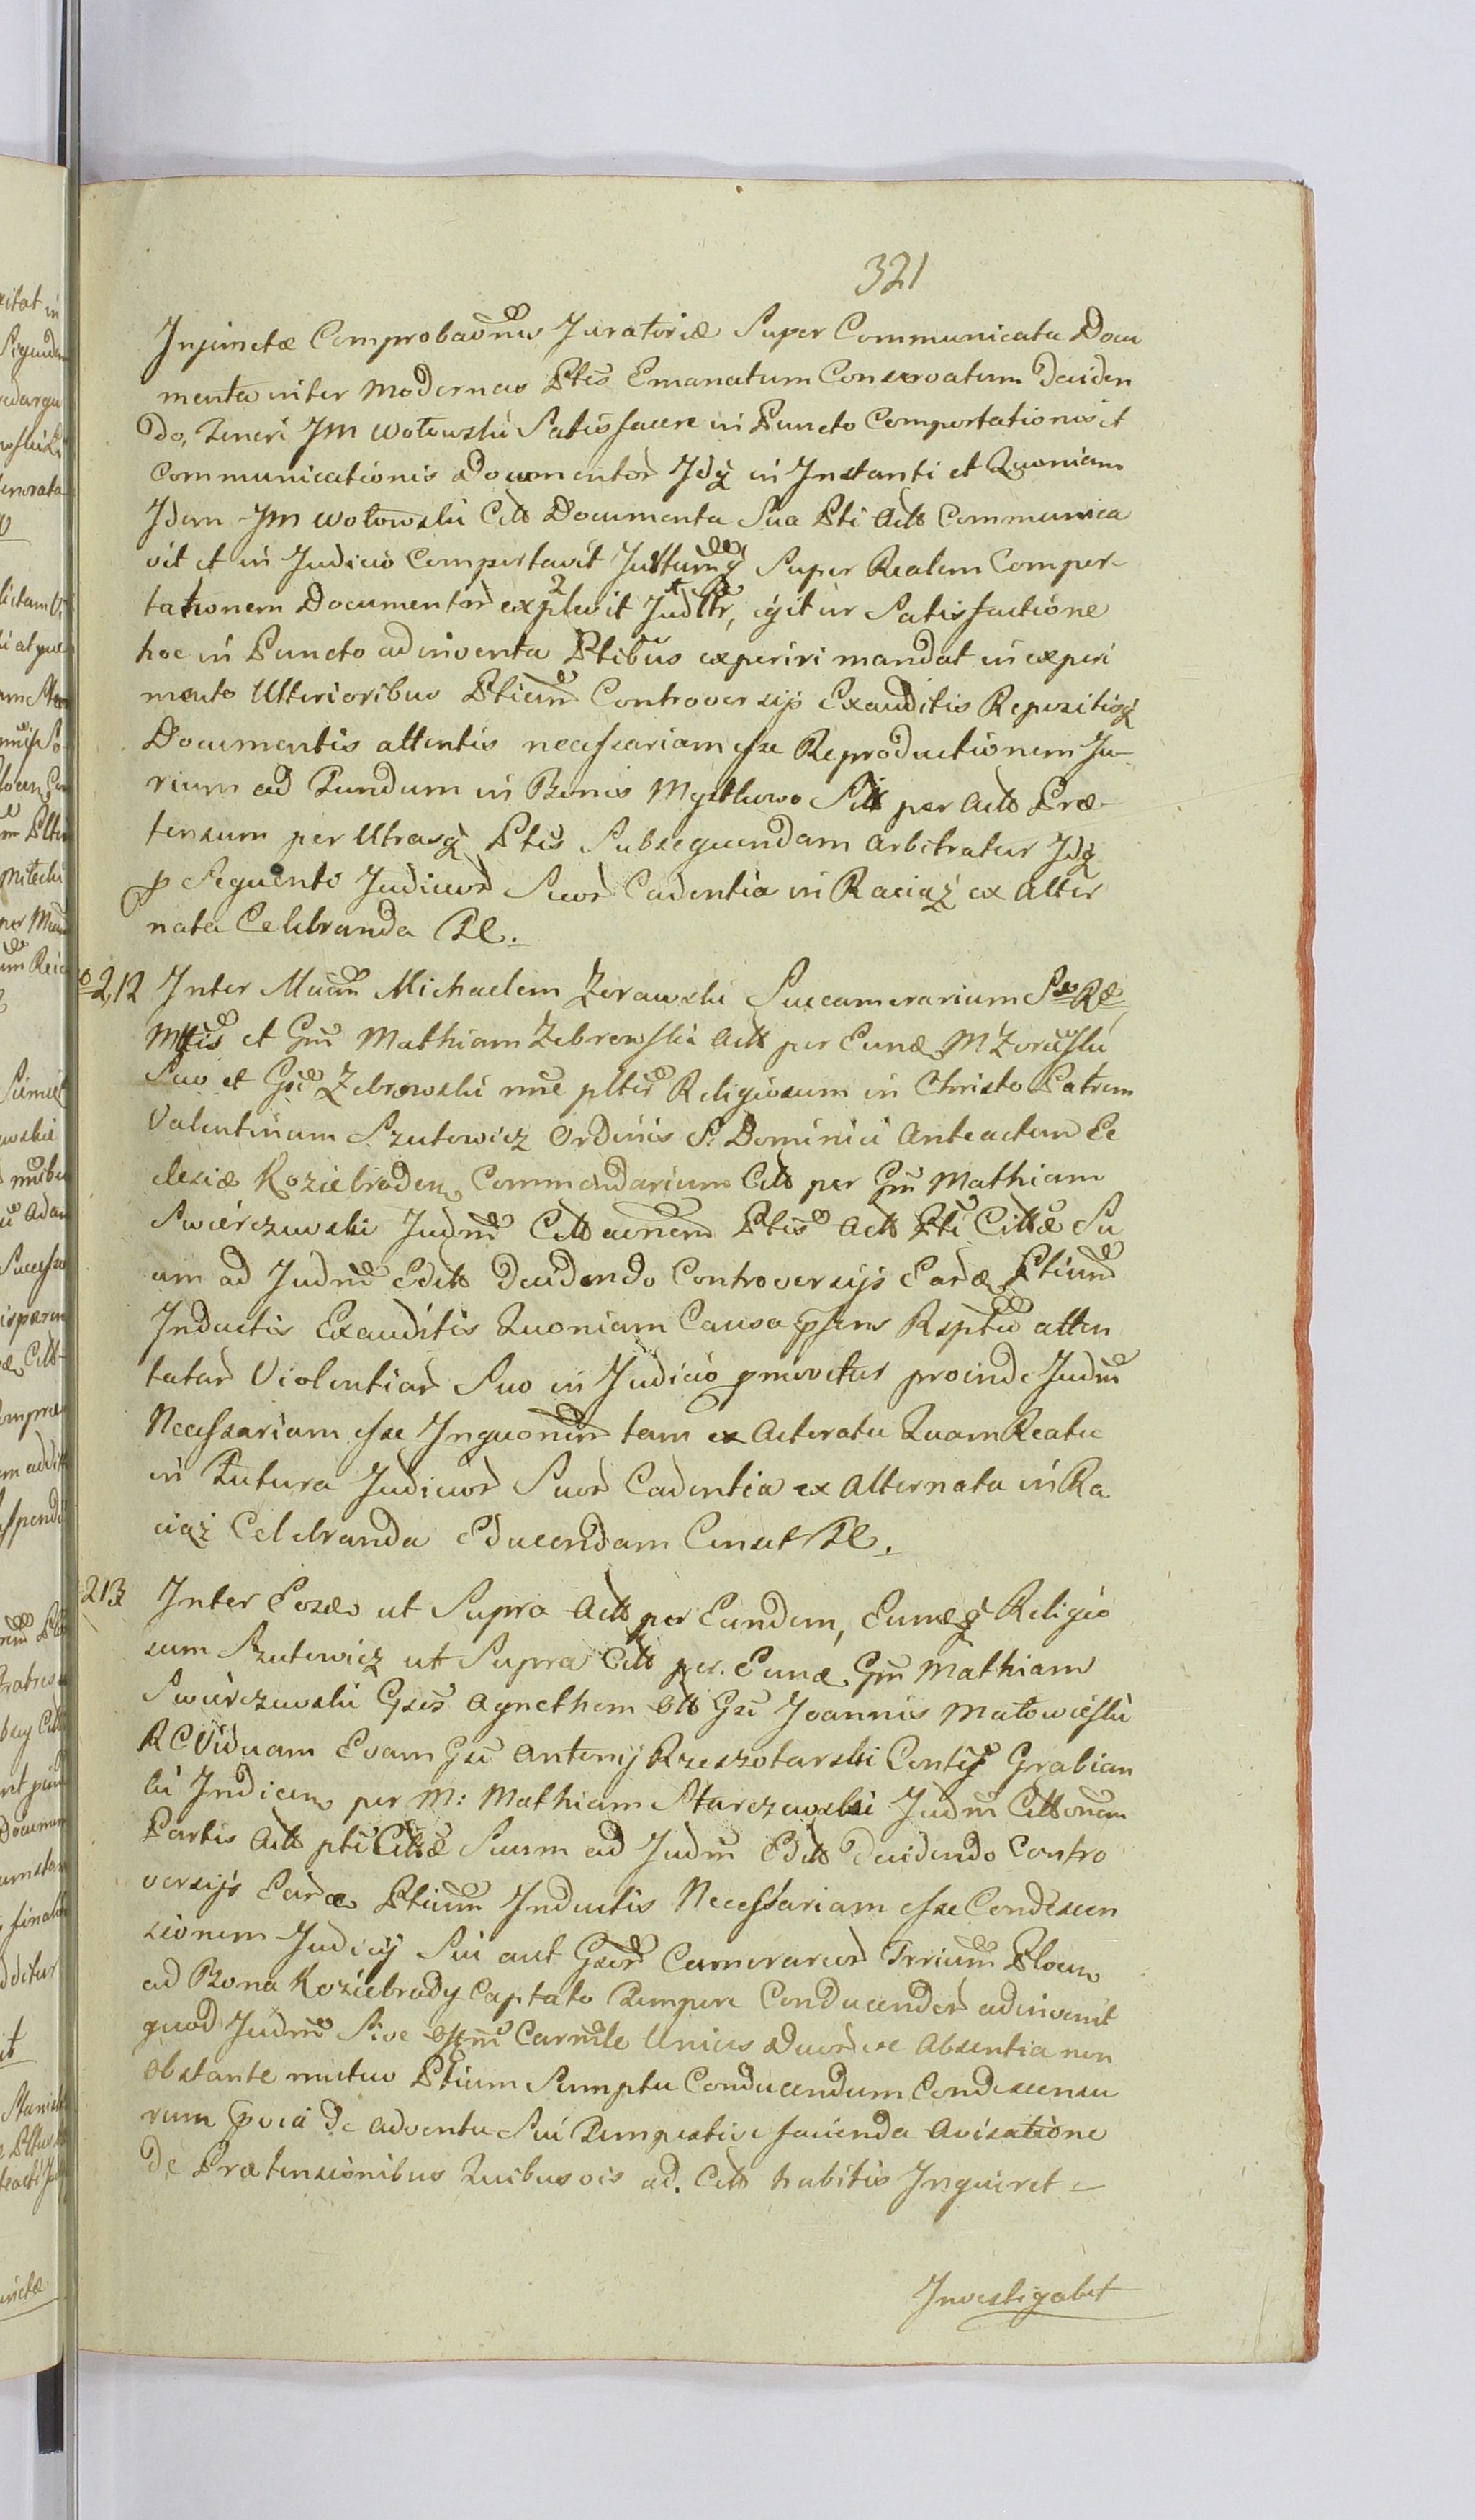 321
Injunctæ Comprobaonis Juratoriæ Super Communicata Docu
menta inter Modernas Ptes Emanatum Conservatum Deciden
do, Teneri JM Wołowski Satisfacere in Puncto Comportationis et
Communicationis Documentor Idq in Instanti et Quoniam
Idem JM Wołowski Citt Documenta Sua Pti Actt Communica
vit et in Judicio Comportavit Justumq Super Realem Compor-
tationem Documentor explevit igitur Satisfactione
hoc in Puncto adinventa Ptibus experiri mandat in experi
mento Ulterioribus Ptium Controversijs Exauditis Repositisq
Documentis attentis necessariam esse Reproductionem Ju-
rium ad Fundum in Bonis per Actt Præ-
tensum per Utrasq Ptes Subsequendam arbitratur Idq
Sequenti Judicior Suor Cadentia in Raciąż ex Alter
nata Celebranda
212 Inter Michaelem Zorawski Succamerarium
et Gm Mathiam Zebrowski Actt per Eund M Zorawski
Suo et Gsi Zebrowski nne pltis Religiosum in Christo Patrem
Valentinum Szutowicz Ordinis S. Dominici Anteactum Ec
clesiæ Koziebroden Commendarium Citt per Gm Mathiam
Swierczewski Judm Cittaonem Ptis Actt Pti Cittæ Su
am ad Judm Editt Decidendo Controversijs Eard Ptium
Inductis Exauditis Quoniam Causa psens Rsptu atten
tatar Violentiar Suo in Judicio pmovetur proinde Judm
Necessariam esse Inquonem tam ex Actoratu Quam Reatu
in Futura Judicior Suor Cadentia ex Alternata in Ra
ciąż Celebranda Educendam Censet
213 Inter Eosd ut Supra Actt per Eundem, Eumq Religio
sum Szutowicz ut Supra Citt per Eund Gm Mathiam
Swierczewski Gsas Agnethem Gsi Joannis Małowieski
Viduam Evam Gsi Antonij Rzeszotarski Contig Grabian
ki Judicem per M: Mathiam Starczewski Judm Cittonem
Partis Actt pti Cittæ Suum ad Judm Editt Decidendo Contro
versijs Eard Ptium Inductis Necessariam esse Condescen
sionem Judicij Sui aut Gsor Camerarior Trrium Plocen
ad Bona Koziebrody Captato Tempore Conducendor adinvenit
quod Judm Sive Offm Carmle Unius Duor ve Absentia non
Obstante mutuo Ptium Sumptu Conducendum Condescensu
rum pvia de Adventu Sui Tempestive facienda Avisatione
De Prætensionibus Quibusvis ad. Citt habitis Inquiret
Investigabit